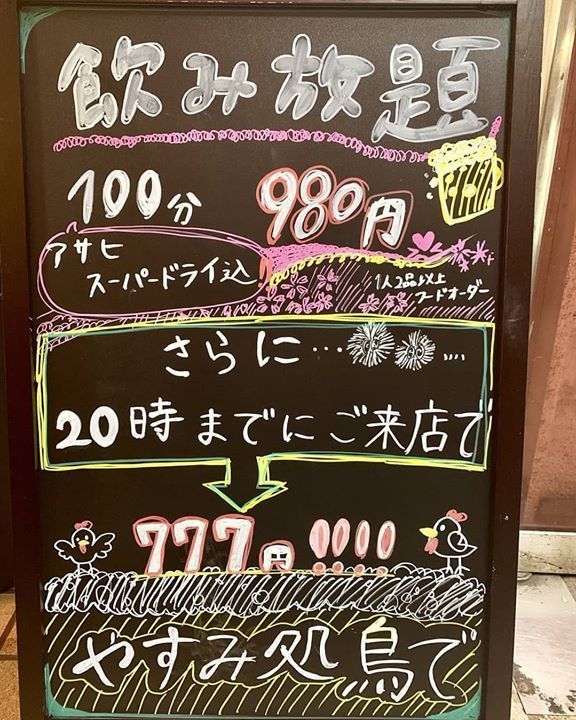 飲み放題
100分 980円
アサヒ
スーパードライ込
1人2品以上
フードオーダー
さらに… ....
20時までにご来店で
777円!!!!
やすみ処 鳥で